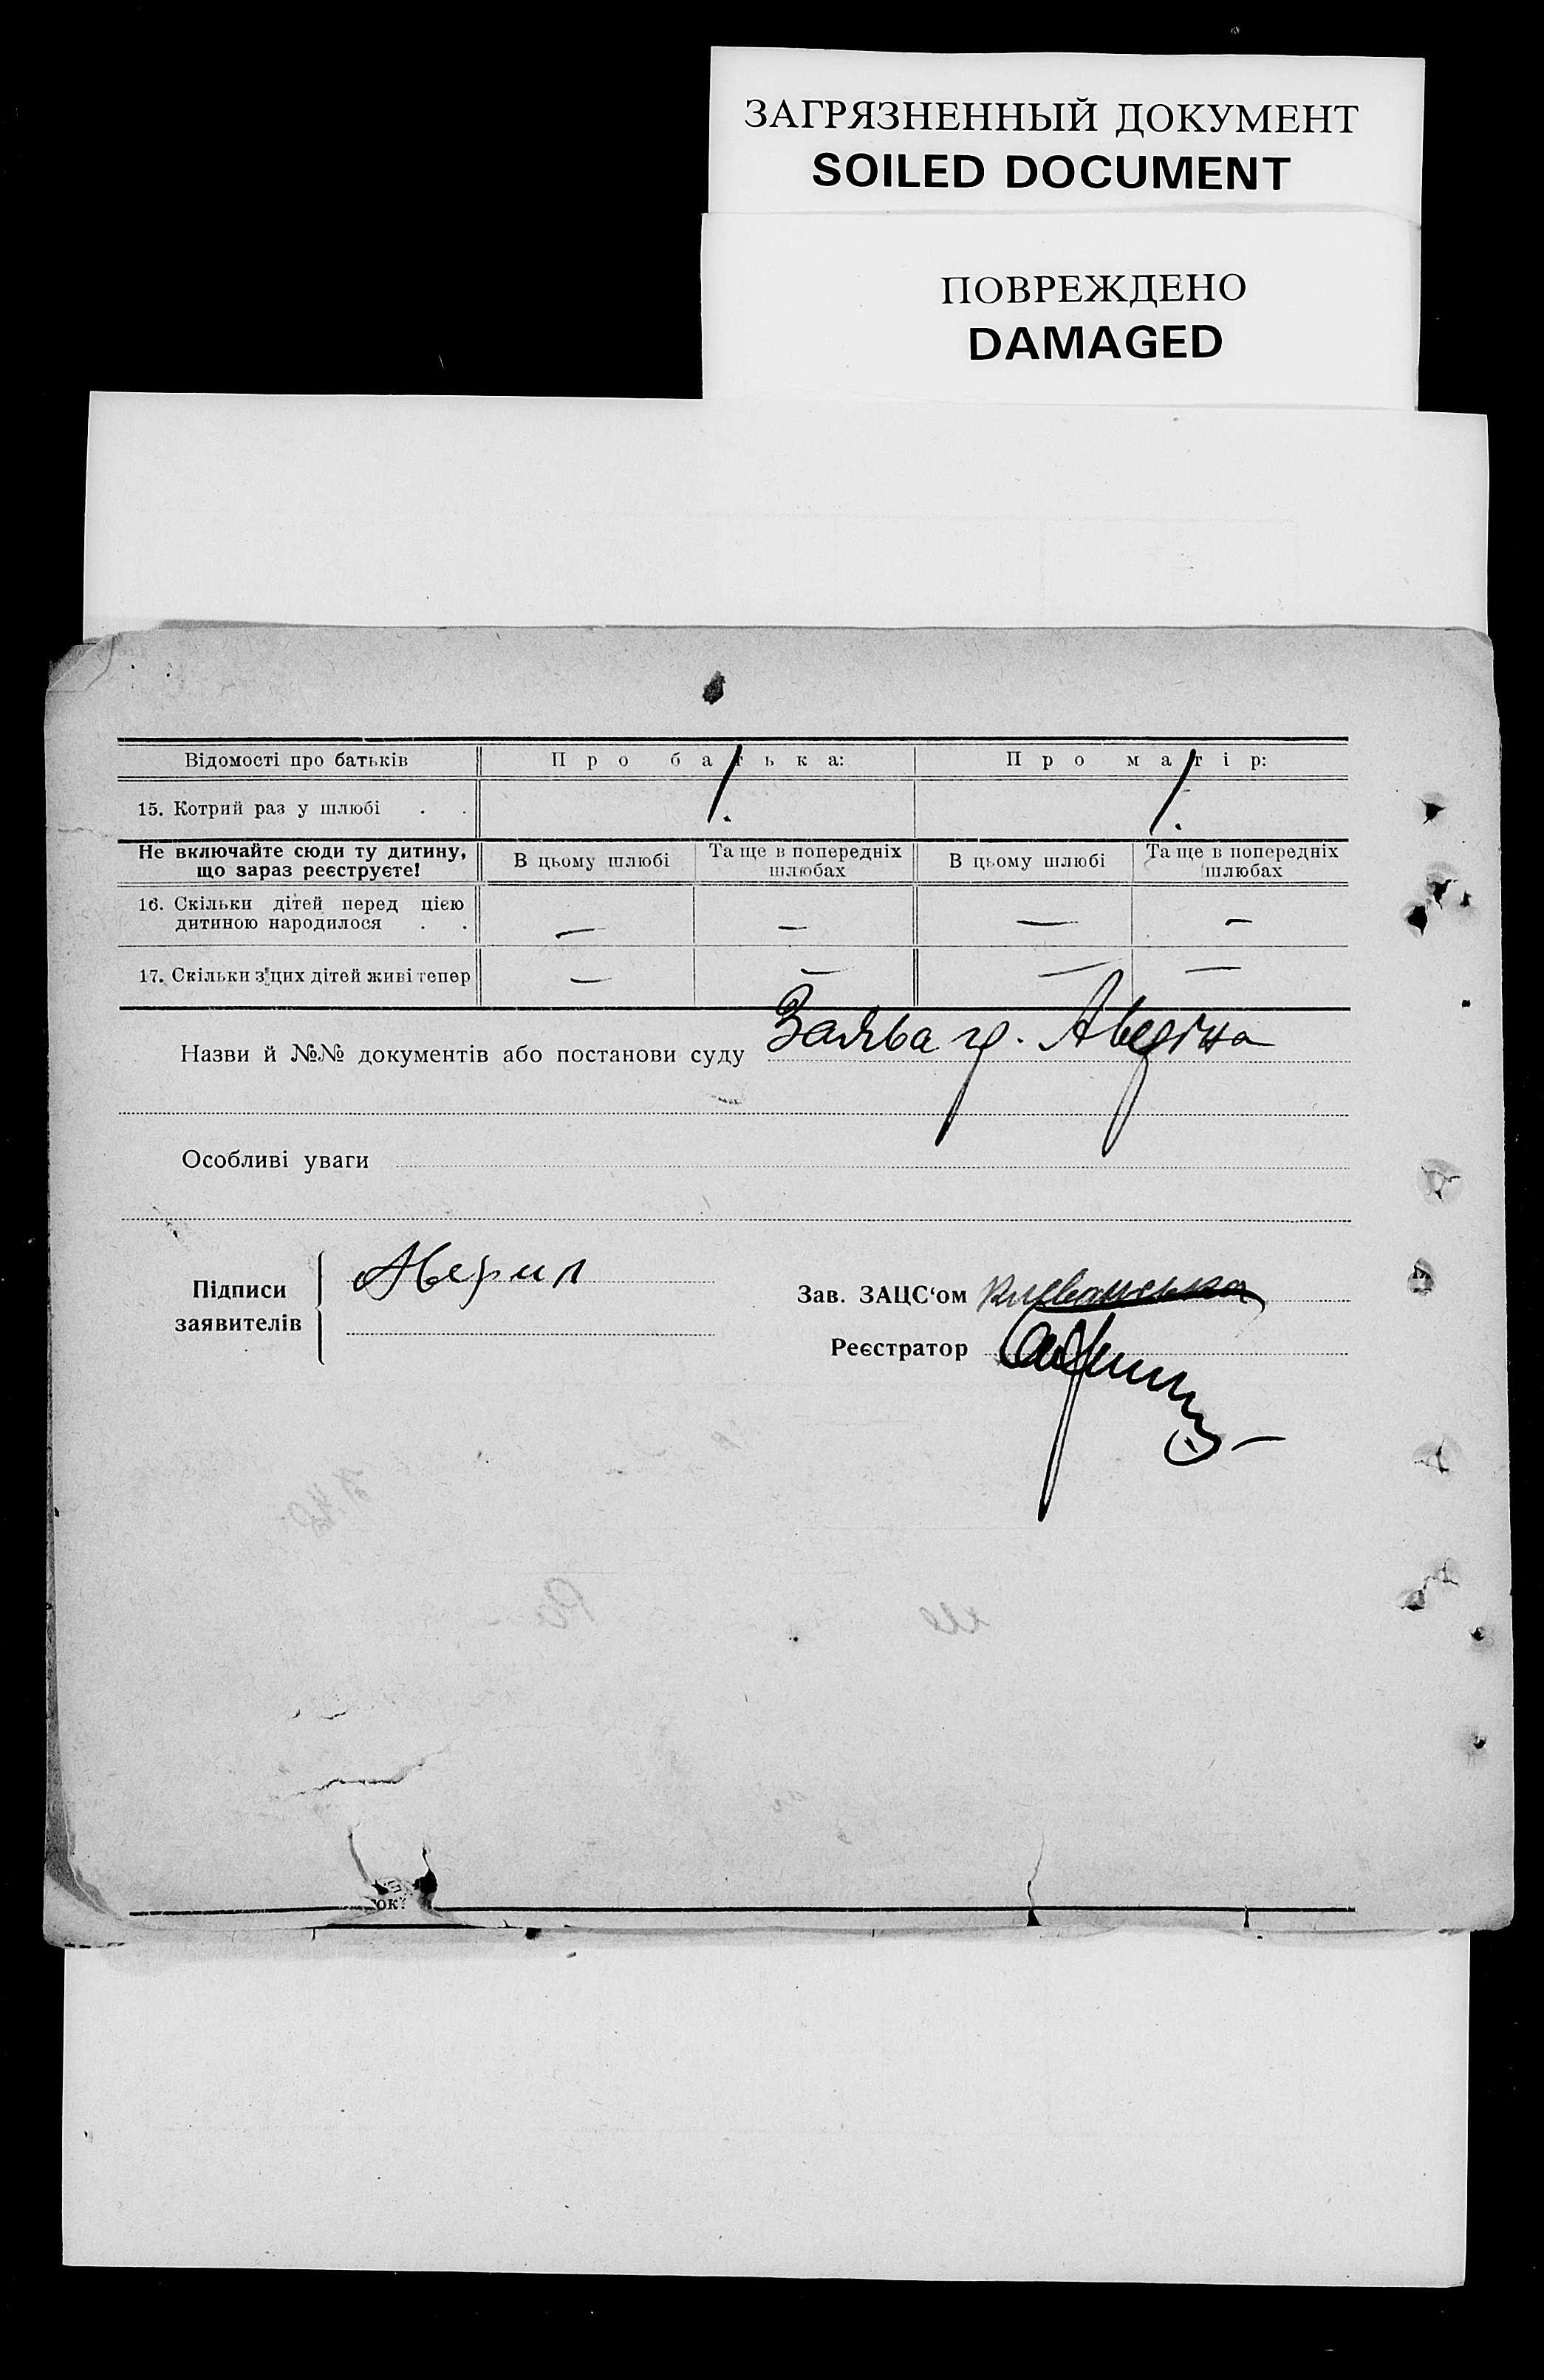 ЗАГРЯЗНЕННЫЙ ДОКУМЕНТ
SOILED DOCUMENT
ПОВРЕЖДЕНО
DAMAGED
Відомості про батьків Про батька: Про матір:
15. Котрий раз у шлюбі . . 1. 1.
Не включайте сюди ту дитину, що зараз реєструєте! В цьому шлюбі Та ще в попередніх шлюбах В цьому шлюбі Та ще в попередніх шлюбах
16. Скільки дітей перед цією
дитиною народилося . . — — — —
17. Скільки з цих дітей живі тепер — — — —
Назви й №№ документів або постанови суду Заява гр.
Особливі уваги
Підписи
заявителів
Зав. ЗАЦС‘ом
Реєстратор
ок?